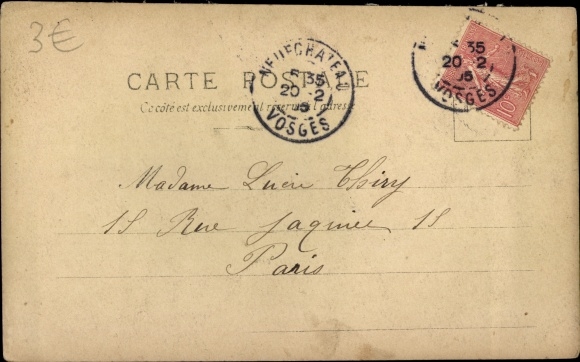 3€
NEUFCHATEAU
5 35
20 - 2
VOSGES
5 35
20 - 2
05
VOSGES
10
CARTE POSTALE
Ce côté est exclusivement réservé à l'adresse
Madame Lucie Thiry
15 Rue Jaquier 15
Paris